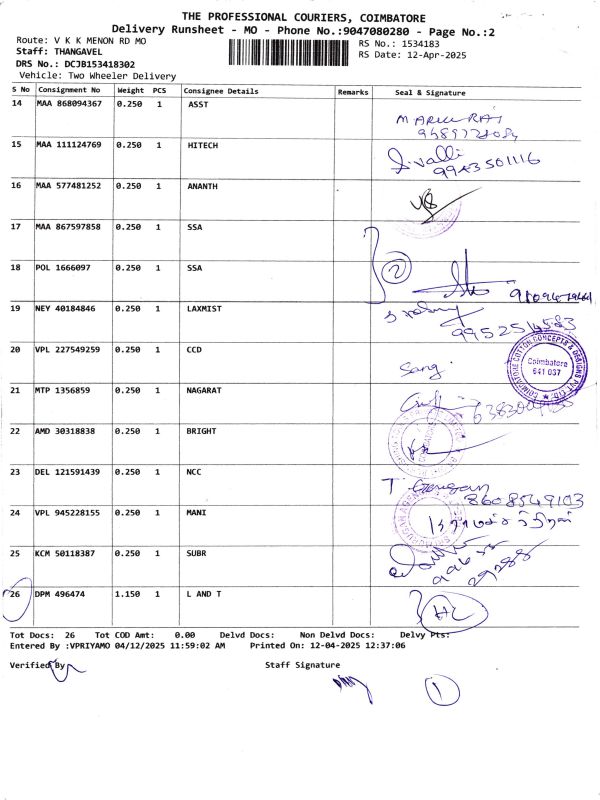 THE PROFESSIONAL COURIERS, COIMBATORE
Delivery Runsheet - MO - Phone No.:9047080280 - Page No.:2
Route: V K K MENON RD MO
Staff: THANGAVEL
DRS No.: DCJB153418302
Vehicle: Two Wheeler Delivery
RS No.: 1534183
RS Date: 12-Apr-2025
S No Consignment No Weight PCS Consignee Details Remarks Seal & Signature
14 MAA 868094367 0.250 1 ASST
15 MAA 111124769 0.250 1 HITECH
9943501116
16 MAA 577481252 0.250 1 ANANTH
17 MAA 867597858 0.250 1 SSA
18 POL 1666097 0.250 1 SSA
2
19 NEY 40184846 0.250 1 LAXMIST
20 VPL 227549259 0.250 1 CCD
Sang.
COIMBATORE COTTON CONCEPTS & DESIGNS PVT LTD.
Coimbatore
641 037
21 MTP 1356859 0.250 1 NAGARAT
22 AMD 30318838 0.250 1 BRIGHT
23 DEL 121591439 0.250 1 NCC
8608549103
24 VPL 945228155 0.250 1 MANI
25 KCM 50118387 0.250 1 SUBR
26 DPM 496474 1.150 1 L AND T
Tot Docs: 26 Tot COD Amt: 0.00 Delvd Docs: Non Delvd Docs: Delvy Pts:
Entered By :VPRIYAMO 04/12/2025 11:59:02 AM Printed On: 12-04-2025 12:37:06
Verified By Staff Signature
1